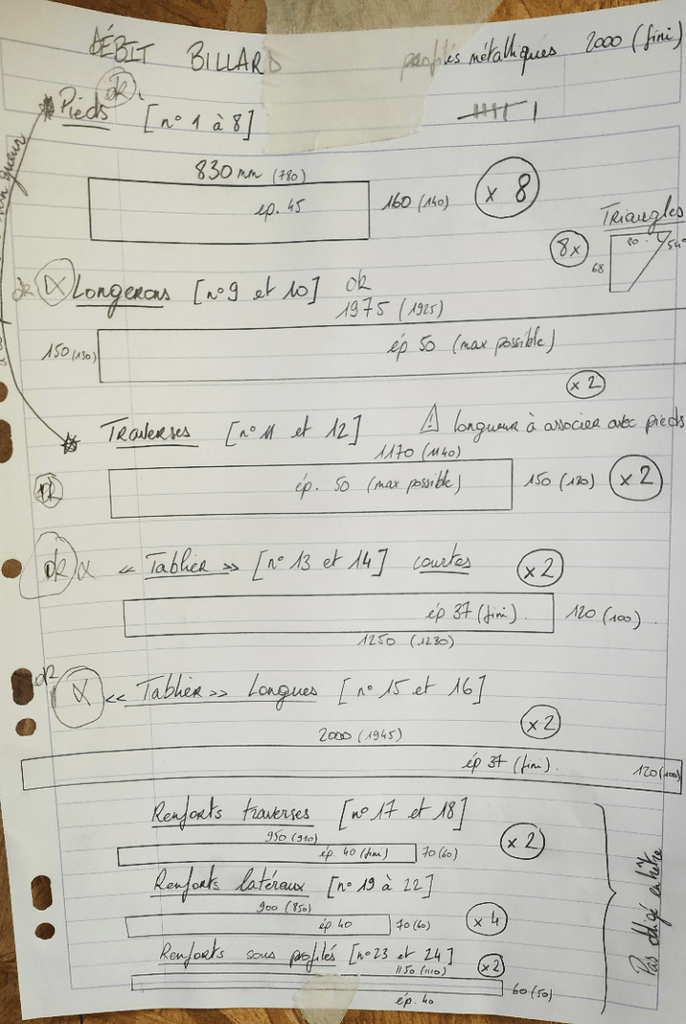 DÉBIT BILLARD
profilés métalliques 2000 (fini)
Pieds ok
[n° 1 à 8]
830 mm (780)
ép. 45
160 (140)
x 8
Triangles
8x
80
54°
68
ok Longerons [n°9 et 10] ok
1975 (1925)
150 (130)
ép 50 (max possible)
x 2
Traverses [n° 11 et 12] ⚠ longueur à associer avec pieds
1170 (1140)
ok
ép. 50 (max possible)
150 (130)
x 2
ok « Tablier » [n° 13 et 14] courtes
x 2
ép 37 (fini).
120 (100).
1250 (1230)
ok
« Tablier » Longues [n° 15 et 16]
x 2
2000 (1945)
ép 37 (fini).
120 (100)
Renforts traverses [n° 17 et 18]
950 (910)
ép. 40 (fini)
70 (60)
x 2
Renforts latéraux [n° 19 à 22]
900 (850)
ép 40
70 (60)
x 4
Renforts sous profilés [n°23 et 24]
x 2
1150 (1110)
ép. 40
60 (50)
Pas obligé en hêtre